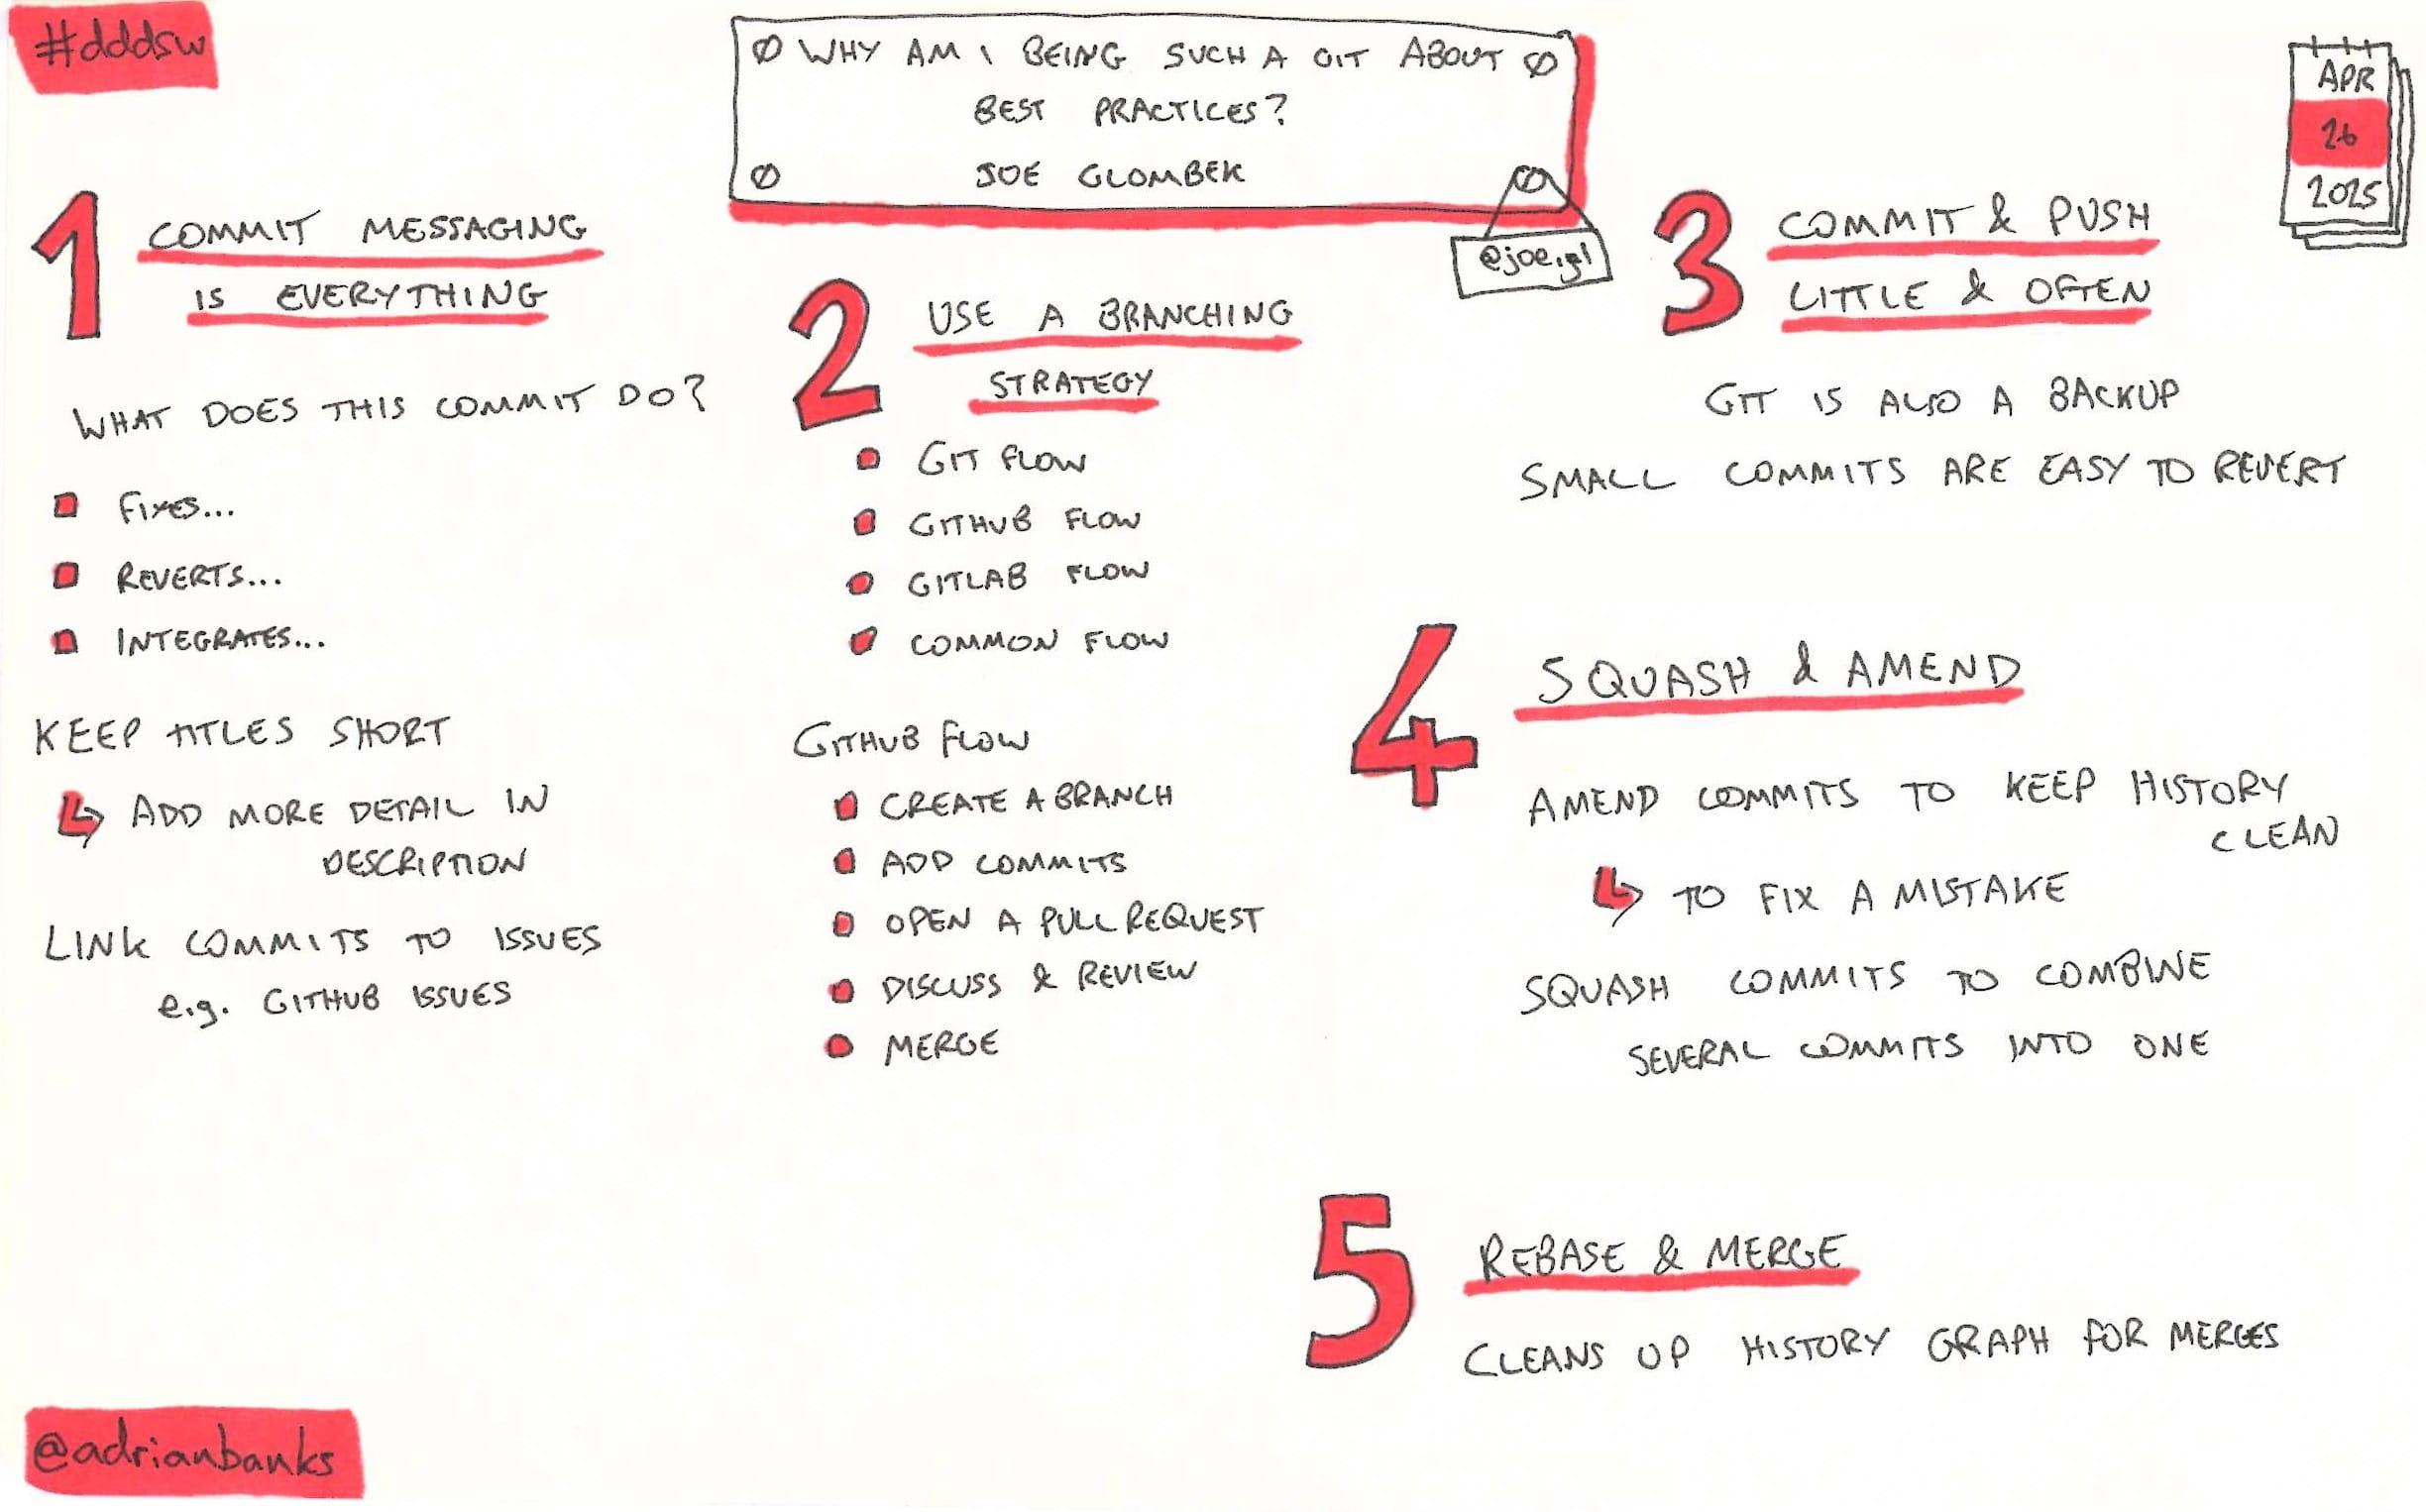 #dddsw
WHY AM I BEING SUCH A GIT ABOUT
BEST PRACTICES?
JOE GLOMBEK
@joe.gl
APR
26
2025
1 COMMIT MESSAGING
IS EVERYTHING
WHAT DOES THIS COMMIT DO?
FIXES...
REVERTS...
INTEGRATES...
KEEP TITLES SHORT
ADD MORE DETAIL IN
DESCRIPTION
LINK COMMITS TO ISSUES
e.g. GITHUB ISSUES
2 USE A BRANCHING
STRATEGY
GIT FLOW
GITHUB FLOW
GITLAB FLOW
COMMON FLOW
GITHUB FLOW
CREATE A BRANCH
ADD COMMITS
OPEN A PULL REQUEST
DISCUSS & REVIEW
MERGE
3 COMMIT & PUSH
LITTLE & OFTEN
GIT IS ALSO A BACKUP
SMALL COMMITS ARE EASY TO REVERT
4 SQUASH & AMEND
AMEND COMMITS TO KEEP HISTORY
CLEAN
TO FIX A MISTAKE
SQUASH COMMITS TO COMBINE
SEVERAL COMMITS INTO ONE
5 REBASE & MERGE
CLEANS UP HISTORY GRAPH FOR MERGES
@adrianbanks